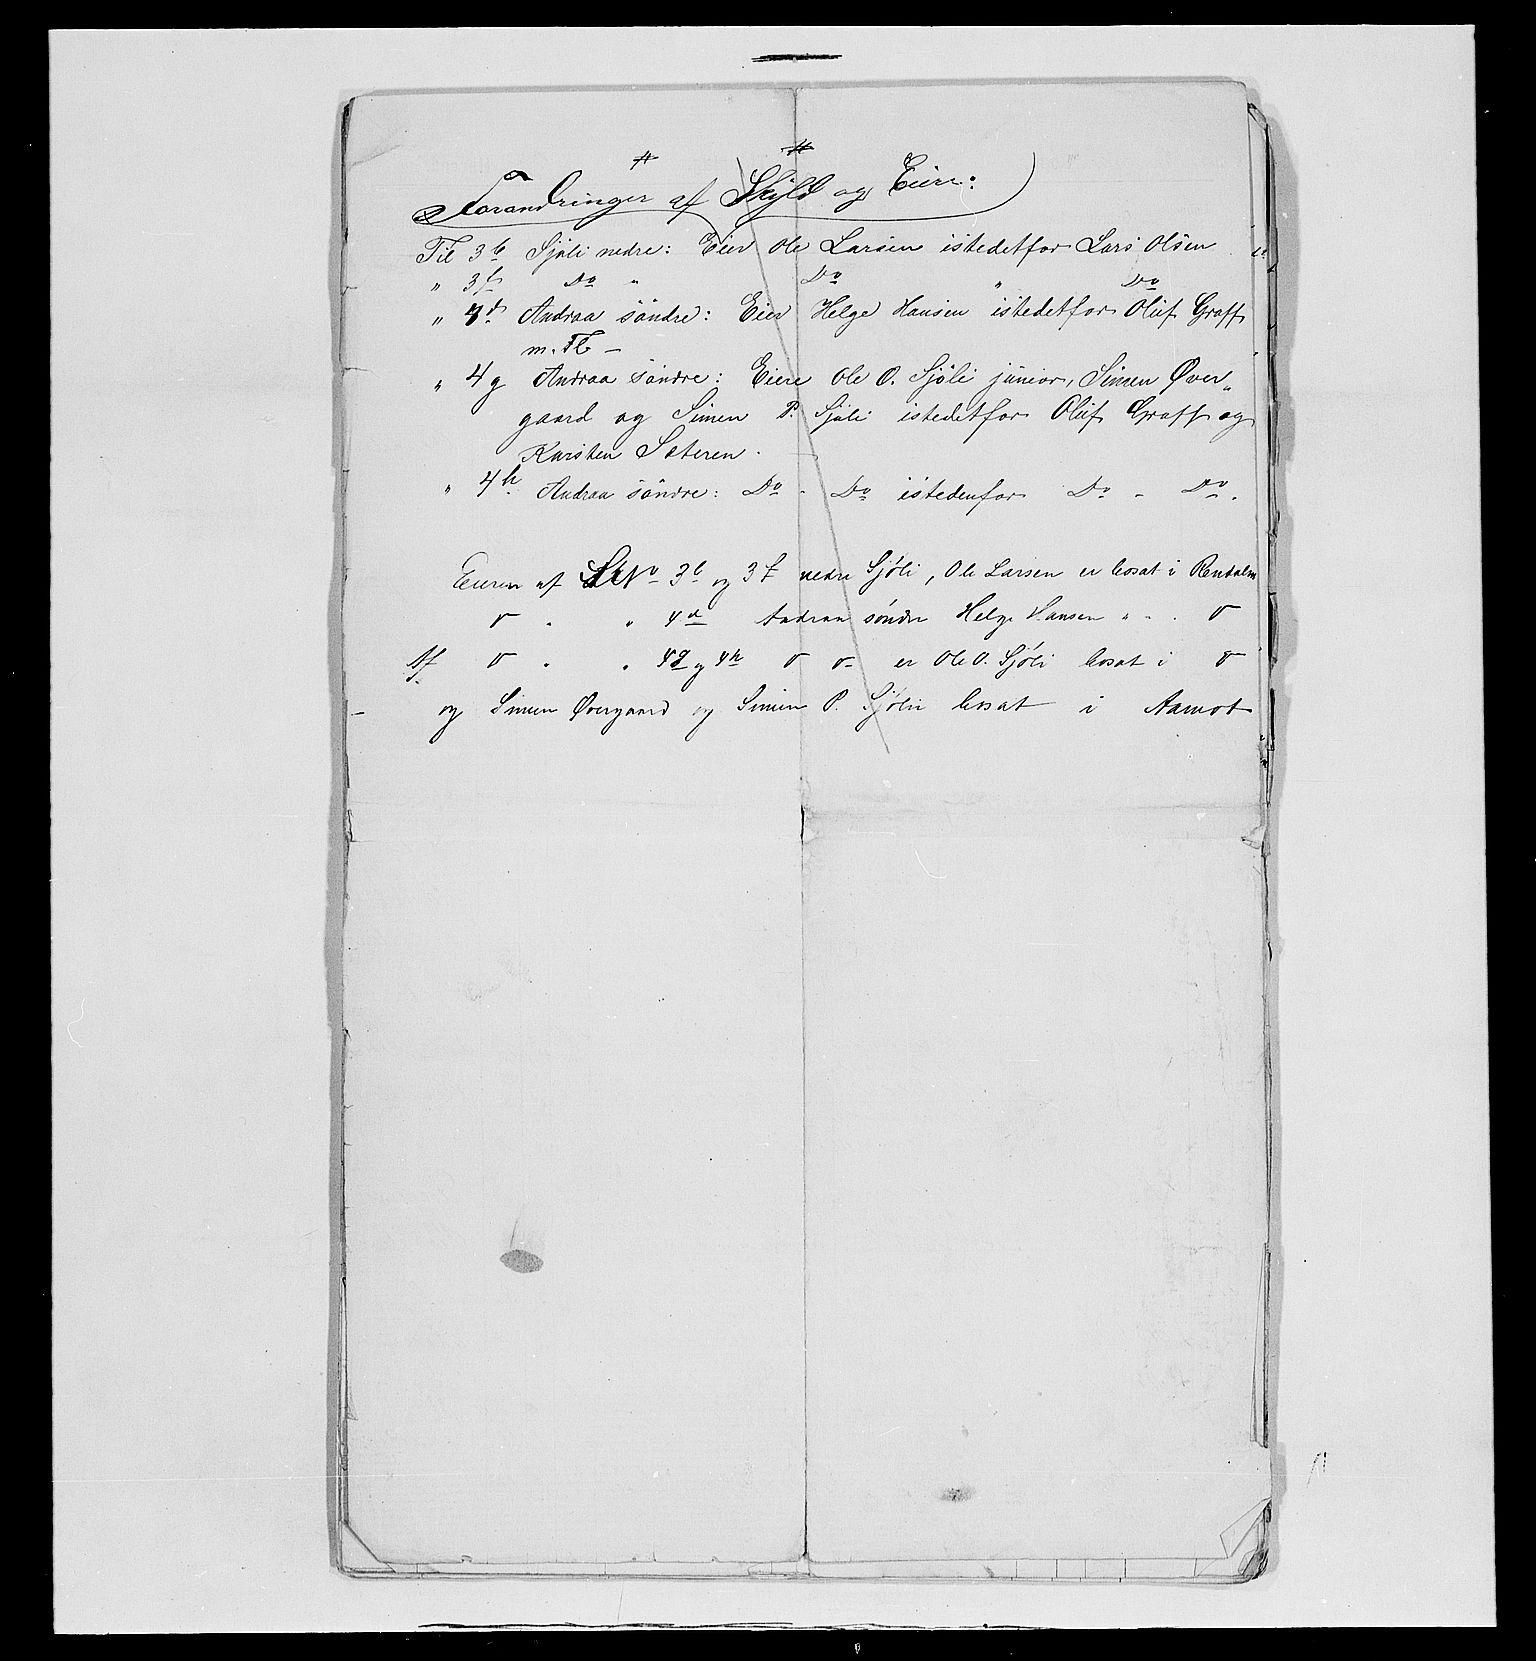 Forandringer af Skyld og Eiere:
Til 3b Sjöli nedre: Eier Ole Larsen istedetfor Lars Olsen
" 3f Do " Do " Do
" 4d Andraa söndre: Eier Helge Hansen istedetfor Oluf Graff
m. Fl. –
" 4g Andraa söndre: Eiere Ole O. Sjöli junior, Simen Øver„
gaard og Simen P. Sjöli istedetfor Oluf Graff og
Karsten Sæteren.
" 4h Andraa söndre: Do - Do istedenfor Do - Do.
Eieren af LNo 3b og 3f nedre Sjöli, Ole Larsen er bosat i Rendalen
" " 4d Andraa söndre Helge Hansen " - .
Af " " 4g og 4h er Ole O. Sjöli bosat i
og Simen Øvergaard og Simen P. Sjölie bosat i Aamot